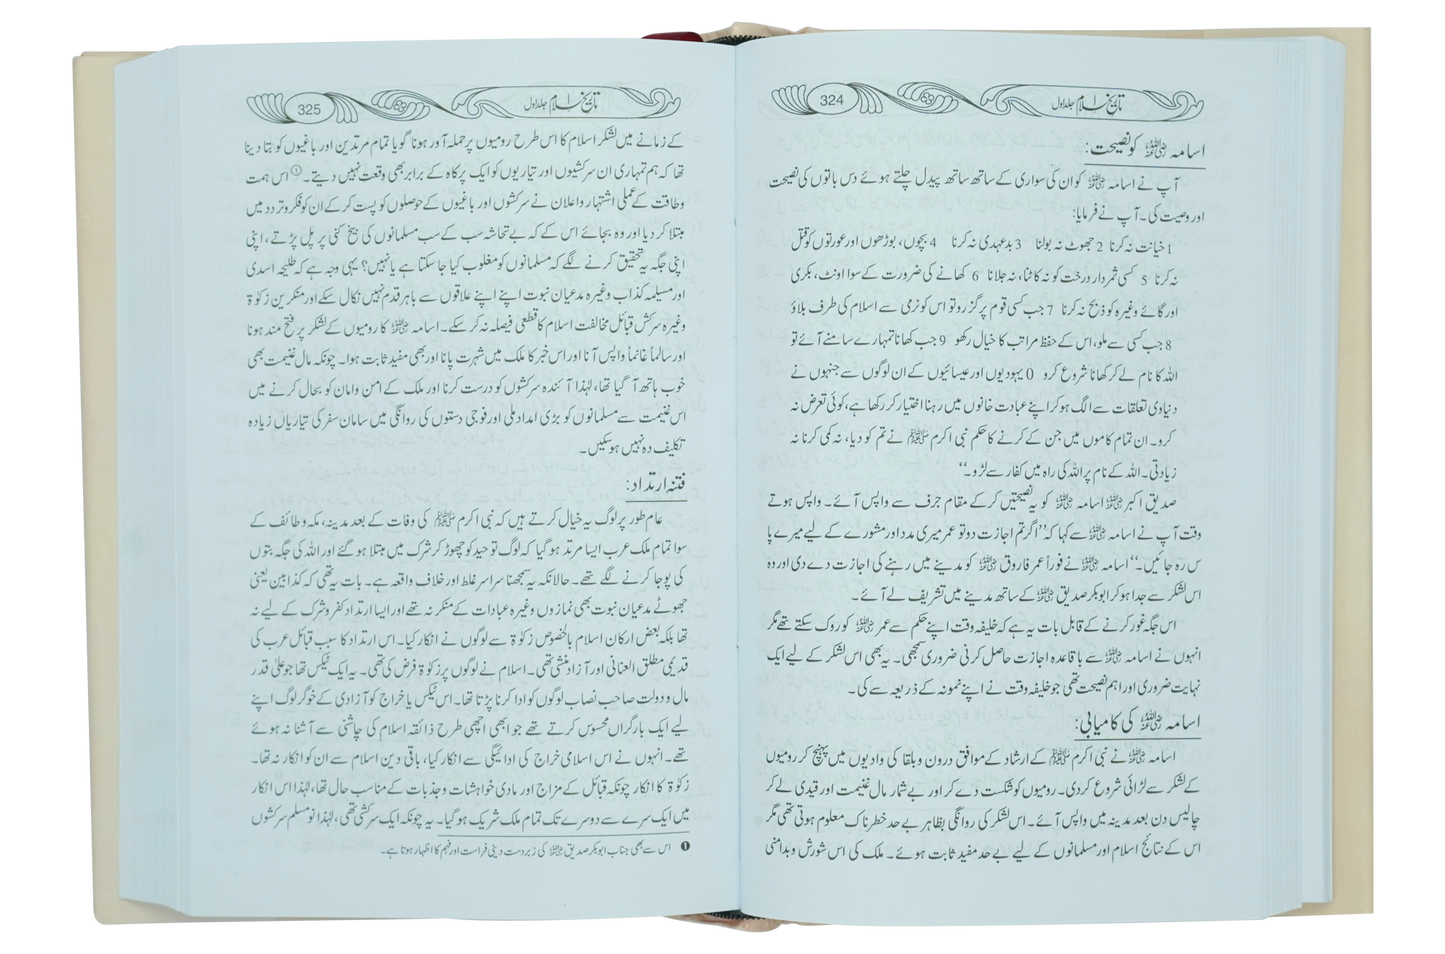 تاریخ اسلام جلد اول
324
اسامہ رضی اللہ عنہ کو نصیحت:
آپ نے اسامہ رضی اللہ عنہ کو ان کی سواری کے ساتھ ساتھ پیدل چلتے ہوئے دس باتوں کی نصیحت
اور وصیت کی۔ آپ نے فرمایا:
1 خیانت نہ کرنا 2 جھوٹ نہ بولنا 3 بدعہدی نہ کرنا 4 بچوں، بوڑھوں اور عورتوں کو قتل
نہ کرنا 5 کسی ثمردار درخت کو نہ کاٹنا، نہ جلانا 6 کھانے کی ضرورت کے سوا اونٹ، بکری
اور گائے وغیرہ کو ذبح نہ کرنا 7 جب کسی قوم پر گزرو تو اس کو نرمی سے اسلام کی طرف بلاؤ
8 جب کسی سے ملو، اس کے حفظ مراتب کا خیال رکھو 9 جب کھانا تمہارے سامنے آئے تو
اللہ کا نام لے کر کھانا شروع کرو 0 یہودیوں اور عیسائیوں کے ان لوگوں سے جنہوں نے
دنیاوی تعلقات سے الگ ہو کر اپنے عبادت خانوں میں رہنا اختیار کر رکھا ہے، کوئی تعرض نہ
کرو۔ ان تمام کاموں میں جن کے کرنے کا حکم نبی اکرم ﷺ نے تم کو دیا، نہ کمی کرنا نہ
زیادتی۔ اللہ کے نام پر اللہ کی راہ میں کفار سے لڑو۔‘‘
صدیق اکبر رضی اللہ عنہ اسامہ رضی اللہ عنہ کو یہ نصیحتیں کر کے مقام جرف سے واپس آئے۔ واپس ہوتے
وقت آپ نے اسامہ رضی اللہ عنہ سے کہا کہ ’’اگر تم اجازت دو تو عمر میری مدد اور مشورے کے لیے میرے پا
س رہ جائیں۔‘‘ اسامہ رضی اللہ عنہ نے فوراً عمر فاروق رضی اللہ عنہ کو مدینے میں رہنے کی اجازت دے دی اور وہ
اس لشکر سے جدا ہو کر ابوبکر صدیق رضی اللہ عنہ کے ساتھ مدینے میں تشریف لے آئے۔
اس جگہ غور کرنے کے قابل بات یہ ہے کہ خلیفہ وقت اپنے حکم سے عمر رضی اللہ عنہ کو روک سکتے تھے مگر
انہوں نے اسامہ رضی اللہ عنہ سے باقاعدہ اجازت حاصل کرنی ضروری سمجھی۔ یہ بھی اس لشکر کے لیے ایک
نہایت ضروری اور اہم نصیحت تھی جو خلیفہ وقت نے اپنے نمونہ کے ذریعہ سے کی۔
اسامہ رضی اللہ عنہ کی کامیابی:
اسامہ رضی اللہ عنہ نے نبی اکرم ﷺ کے ارشاد کے موافق درون و بلقا کی وادیوں میں پہنچ کر رومیوں
کے لشکر سے لڑائی شروع کر دی۔ رومیوں کو شکست دے کر اور بے شمار مال غنیمت اور قیدی لے کر
چالیس دن بعد مدینہ میں واپس آئے۔ اس لشکر کی روانگی بظاہر بے حد خطرناک معلوم ہوتی تھی مگر
اس کے نتائج اسلام اور مسلمانوں کے لیے بے حد مفید ثابت ہوئے۔ ملک کی اس شورش و بدامنی
تاریخ اسلام جلد اول
325
کے زمانے میں لشکر اسلام کا اس طرح رومیوں پر حملہ آور ہونا گویا تمام مرتدین اور باغیوں کو بتا دینا
تھا کہ ہم تمہاری ان سرکشیوں اور تیاریوں کو ایک پرکاہ کے برابر بھی وقعت نہیں دیتے۔① اس ہمت
وطاقت کے عملی اشتہار و اعلان نے سرکشوں اور باغیوں کے حوصلوں کو پست کر کے ان کو فکر و تردد میں
مبتلا کر دیا اور وہ بجائے اس کے کہ بے تحاشہ سب کے سب مسلمانوں کی بیخ کنی پر پل پڑتے، اپنی
اپنی جگہ یہ تحقیق کرنے لگے کہ مسلمانوں کو مغلوب کیا جا سکتا ہے یا نہیں؟ یہی وجہ ہے کہ طلیحہ اسدی
اور مسیلمہ کذاب وغیرہ مدعیان نبوت اپنے اپنے علاقوں سے باہر قدم نہیں نکال سکے اور منکرین زکوٰۃ
وغیرہ سرکش قبائل مخالفت اسلام کا قطعی فیصلہ نہ کر سکے۔ اسامہ رضی اللہ عنہ کا رومیوں کے لشکر پر فتح مند ہونا
اور سالماً غانماً واپس آنا اور اس خبر کا ملک میں شہرت پانا اور بھی مفید ثابت ہوا۔ چونکہ مال غنیمت بھی
خوب ہاتھ آ گیا تھا، لہٰذا آئندہ سرکشوں کو درست کرنا اور ملک کے امن و امان کو بحال کرنے میں
اس غنیمت سے مسلمانوں کو بڑی امداد ملی اور فوجی دستوں کی روانگی میں سامان سفر کی تیاریاں زیادہ
تکلیف دہ نہیں ہو سکیں۔
فتنہ ارتداد:
عام طور پر لوگ یہ خیال کرتے ہیں کہ نبی اکرم ﷺ کی وفات کے بعد مدینہ، مکہ و طائف کے
سوا تمام ملک عرب ایسا مرتد ہو گیا کہ لوگ توحید کو چھوڑ کر شرک میں مبتلا ہو گئے اور اللہ کی جگہ بتوں
کی پوجا کرنے لگے تھے۔ حالانکہ یہ سمجھنا سراسر غلط اور خلاف واقعہ ہے۔ بات یہ تھی کہ کذابین یعنی
جھوٹے مدعیان نبوت بھی نمازوں وغیرہ عبادات کے منکر نہ تھے اور ایسا ارتداد کفر و شرک کے لیے نہ
تھا بلکہ بعض ارکان اسلام بالخصوص زکوٰۃ سے لوگوں نے انکار کیا۔ اس ارتداد کا سبب قبائل عرب کی
قدیمی مطلق العنانی اور آزاد منشی تھی۔ اسلام نے لوگوں پر زکوٰۃ فرض کی تھی۔ یہ ایک ٹیکس تھا جو علیٰ قدر
مال و دولت صاحب نصاب لوگوں کو ادا کرنا پڑتا تھا۔ اس ٹیکس یا خراج کو آزادی کے خوگر لوگ اپنے
لیے ایک بارگراں محسوس کرتے تھے جو ابھی اچھی طرح ذائقہ اسلام کی چاشنی سے آشنا نہ ہوئے
تھے۔ انہوں نے اس اسلامی خراج کی ادائیگی سے انکار کیا، باقی دین اسلام سے ان کو انکار نہ تھا۔
زکوٰۃ کا انکار چونکہ قبائل کے مزاج اور مادی خواہشات و جذبات کے مناسب حال تھا، لہٰذا اس انکار
میں ایک سرے سے دوسرے تک تمام ملک شریک ہو گیا۔ یہ چونکہ ایک سرکشی تھی، لہٰذا نو مسلم سرکشوں
❶ اس سے بھی جناب ابوبکر صدیق رضی اللہ عنہ کی زبردست دینی فراست اور فہم کا اظہار ہوتا ہے۔